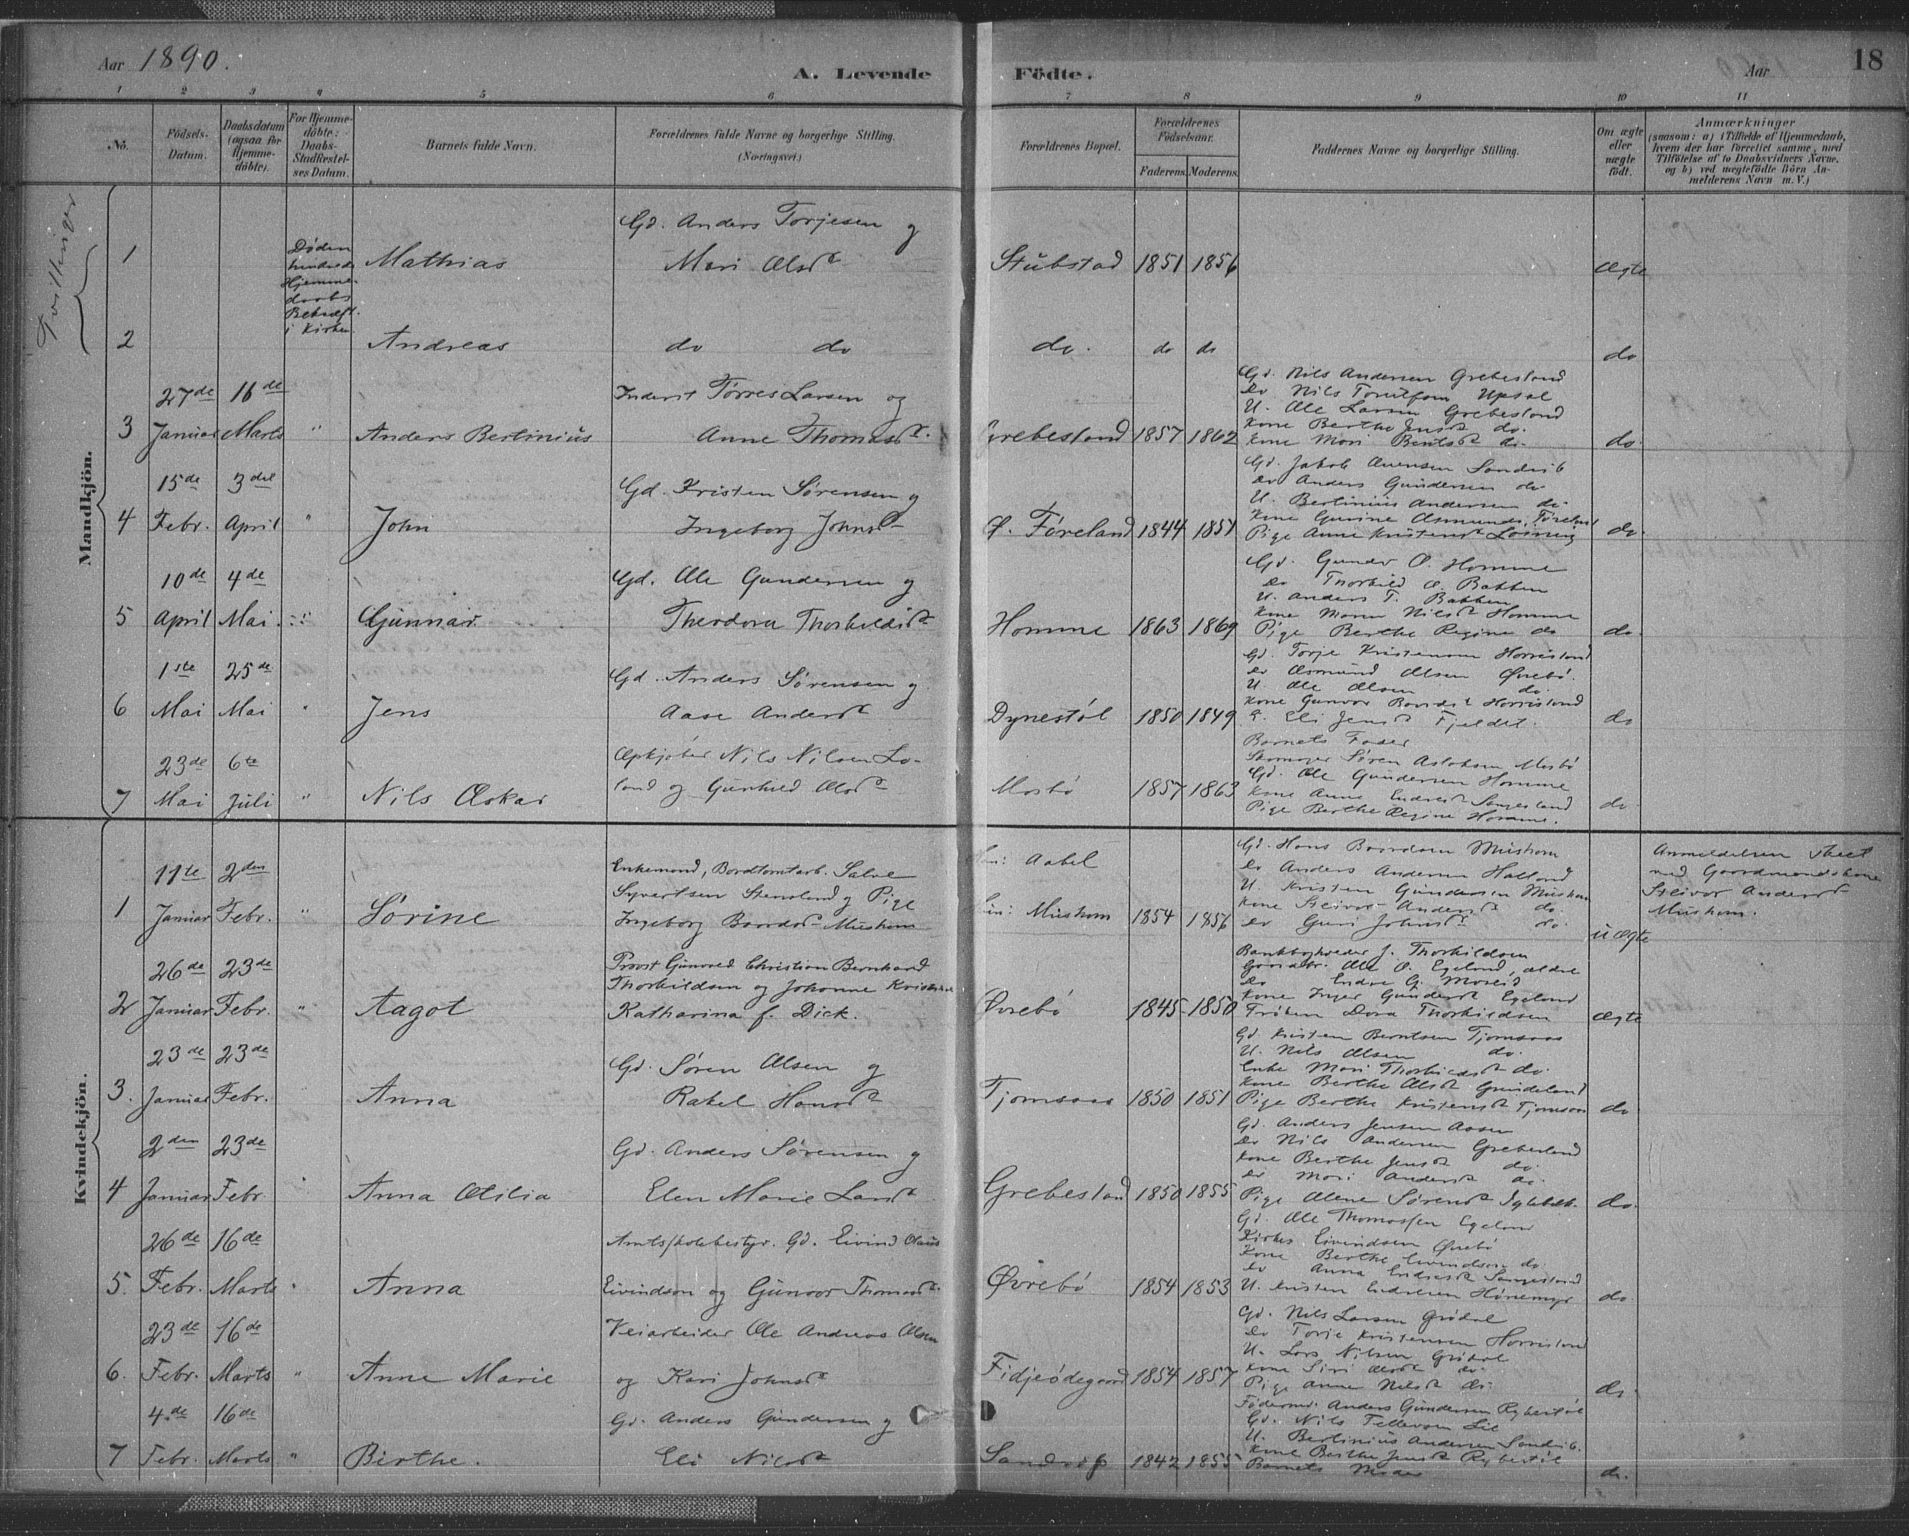 Aar 1890.
A. Levende Födte.
Aar
18
1 2 3 4 5 6 7 8 9 10 11
No.
Födsels-Datum.
Daabsdatum (ogsaa for Hjemme-döbte).
For Hjemme-döbte: Daabs-Stadfæstel-ses Datum.
Barnets fulde Navn.
Forældrenes fulde Navne og borgerlige Stilling.
(Næringsvei.)
Forældrenes Bopæl.
Forældrenes Födselsaar.
Faderens. Moderens.
Faddernes Navne og borgerlige Stilling.
Om ægte eller uægte födt.
Anmærkninger
(saasom: a) i Tilfælde af Hjemmedaab,
hvem der har forrettet samme, med
Tilföielse af to Daabsvidners Navne,
og b) ved uægtefödte Börn An-
melderens Navn m. V.)
Tvillinger
Mandkjön.
1
Døden
hindrede
Hjemme-
daabs
Bekræft.
i Kirken
Mathias
Gd. Anders Torjesen og
Mari Olsd
Stubstad 1851 1856
Ægte
2
Andreas
do do
do. do do
do
27de 16de
3 Januar Marts " Anders Bertinius
Inderst Tørres Larsen og
Anne Thomasd.
Grebestand 1857 1862
Gd. Nils Andersen Grebestand
Do Nils Upsal
U. Ole Larsen Grebestand
Kone Berthe Jensd do.
Kone Mari Bentsd do.
do.
15de 3die
4 Febr. April " John
Gd. Kristen Sørensen og
Ingeborg Johnsd
Ø. Føreland 1844 1851
Gd. Jakob Sandvik
Do Anders Gundersen do
U. Bertinius Andersen do.
Kone Gurine Asmunds. Føreland
Pige Anne Kristensd
do.
10de 4de
5 April Mai Gunnar
Gd. Ole Gundersen og
Theodora Thorkildsd
Homme 1863 1869
Gd. Gunder O. Homme
Do Thorkild O. Bakken
U. Anders T. Bakken
Kone Maren Nilsd Homme
Pige Berthe Regine do
do.
1ste 25de
6 Mai Mai " Jens
Gd. Anders Sørensen og
Aase Andersd
Dynestøl 1850 1849
Gd. Torje Kristensen Horrisland
Do Asmund Olsen Øvrebø
U. Ole Olsen do.
Kone Gunvor Horrisland
E. Eli Jensd Fjeldet.
do
23de 6te
7 Mai Juli " Nils Oskar
Opkjøber Nils Nilsen Lo-
land og Gunhild Olsd
Mosbø 1857 1863
Barnets Fader
Skomager Søren Aslaksen Mosbø
Gd. Ole Gundersen Homme
Kone Anne Endresd
Pige Berthe Regine Homme.
do
Kvindekjön.
11te 2den
1 Januar Febr. " Sørine
Enkemand, Bordtomtarb. Salve
Syvertsen Stensland og Pige
Ingeborg Baardsd Mushom
Aabel
Mushom 1854 1856
Gd. Hans Baardsen Mushom
Do Anders Andersen Halland
U. Kristen Gundersen Mushom
Kone Steivor Andersd do.
Do Guri Johnsd do.
uægte
Anmeldelsen skeet
ved Gaardmandskone
Steivor Andersd
Mushom.
26de 23de
2 Januar Febr. " Aagot
Provst Gunvald Christian Bernhard
Thorkildsen og Johanne
Katharina f. Dick.
Øvrebø 1845 1850
Bankbogholder J. Thorkildsen
Gaardbr. Ole O. Egeland, ældre
Do Endre G. Moseid
Kone Inger Gundersd Egeland
Frøken Dora Thorkildsen
Ægte
23de 23de
3. Januar Febr. Anna
Gd. Søren Olsen og
Rakel Hansd
Tjomsaas 1850 1851
Gd. Kristen Berntsen Tjomsaas
U. Nils Olsen do.
Enke Mari Thorkildsd do.
Kone Berthe Olsd Grundeland
Pige Berthe Kristensd Tjomsaas
do
2den 23de
4 Januar Febr. Anna Otilia
Gd. Anders Sørensen og
Elen Marie Larsd
Grebestand 1850 1855
Gd. Anders Jensen Aasen
Do Nils Andersen Grebestand
Kone Berthe Jensd do.
Do Mari Andersd do.
Pige Olene Sørensd
do.
26de 16de
5. Febr. Marts " Anna
Amtsskolebestyr. Gd. Eivind Olaus
Eivindson og Gunvor Thomasd.
Øvrebø 1854 1853
Gd. Ole Thomassen Egeland
Eivindsen Øvrebø
Kone Berthe Eivindsen do
Do Anna Endresd
U. Kristen Endresen Hønemyr
do.
23de 16de
6. Febr. Marts " Anne Marie
Veiarbeider Ole Andreas Olsen
og Kari Johnsd
Fidjeødegaard 1854 1857
Gd. Nils Larsen Grødal
Do Torje Kristensen Horrisland
U. Lars Nilsen Grødal
Kone Siri Olsd do.
Pige Anne Nilsd do.
do.
4.de 16de
7 Febr. Marts " Birthe.
Gd. Anders Gundersen og
Eli Nilsd
Sandvig 1842 1855
Føderaad. Anders Gundersen Rybestøl
Gd. Nils Tellevsen Lie
U. Bertinius Andersen Sandvik.
Kone Berthe Jensd Rybestøl
Barnets Moder
do.